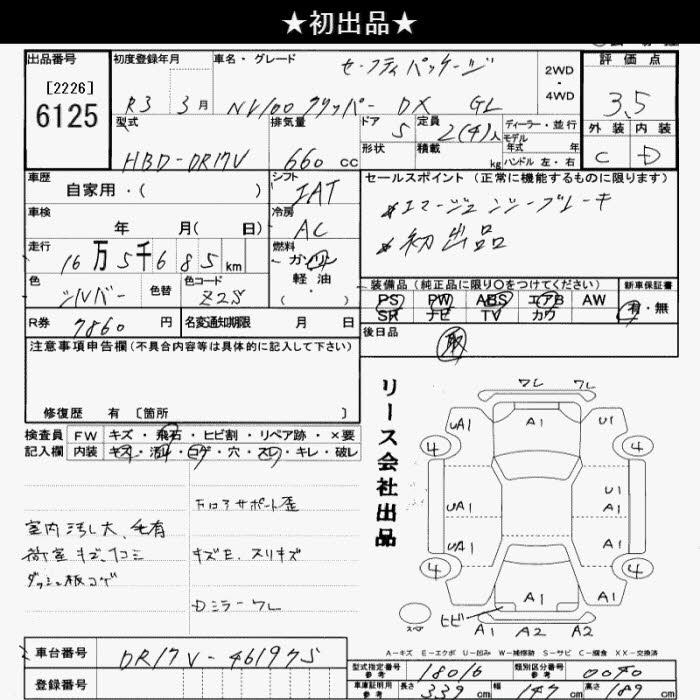 ★初出品★
出品番号 初度登録年月 車名・グレード セーフティパッケージ 2WD・4WD 評価点
[2226]
6125 R3 3月 NV100クリッパー DX GL 3.5
型式 排気量 ドア 5 定員 2(4)人 ディーラー・並行 外装 内装
HBD-DR17V 660cc 形状 積載 kg モデル年式 年 ハンドル 左・右 C D
車歴 自家用・( ) シフト IAT セールスポイント(正常に機能するものに限ります)
車検 年 月( 日) 冷房 AC *エマージェンシーブレーキ
走行 16万5千685km 燃料 ガソリン 軽油 *初出品
色 シルバー 色替 色コード Z2S 装備品(純正品に限り○をつけてください) 新車保証書
PS PW ABS エアB AW 有・無
SR ナビ TV カワ
R券 7860円 名変通知期限 月 日 後日品 取
注意事項申告欄(不具合内容等は具体的に記入して下さい)
修復歴 有 [箇所 ]
検査員 FW キズ・飛石・ヒビ割・リペア跡・×要
記入欄 内装 キズ・汚れ・コゲ・穴・スレ・キレ・破レ
リース会社出品
下回りサポート歪
室内汚し大、毛有
荷室キズ、凹コミ キズE、スリキズ
ダッシュ板コゲ
Dミラーワレ
ワレ ワレ
UA1 A1 U1
4 4
UA1 U1 A1
UA1 A1
4 4
A1
スペア ヒビ A1 A2 A2
A-キズ E-エクボ U-凹み W-補修跡 S-サビ C-腐食 XX-交換済
車台番号 DR17V-461975 型式指定番号 参考 18016 類別区分番号 参考 0040
登録番号 車庫証明用 参考 長さ 339cm 幅 147cm 高さ 189cm